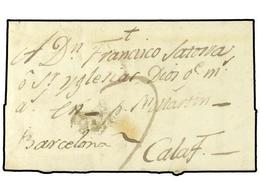 A Dn. Francisco Satorra
ô Sn. Yglesias Dios
a. en S. Martin
Barcelona Calaf.